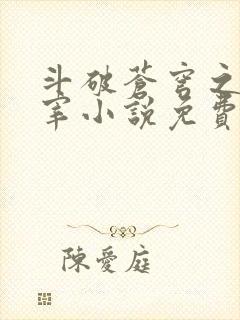 斗破蒼穹之
宰小說免費
陳愛庭